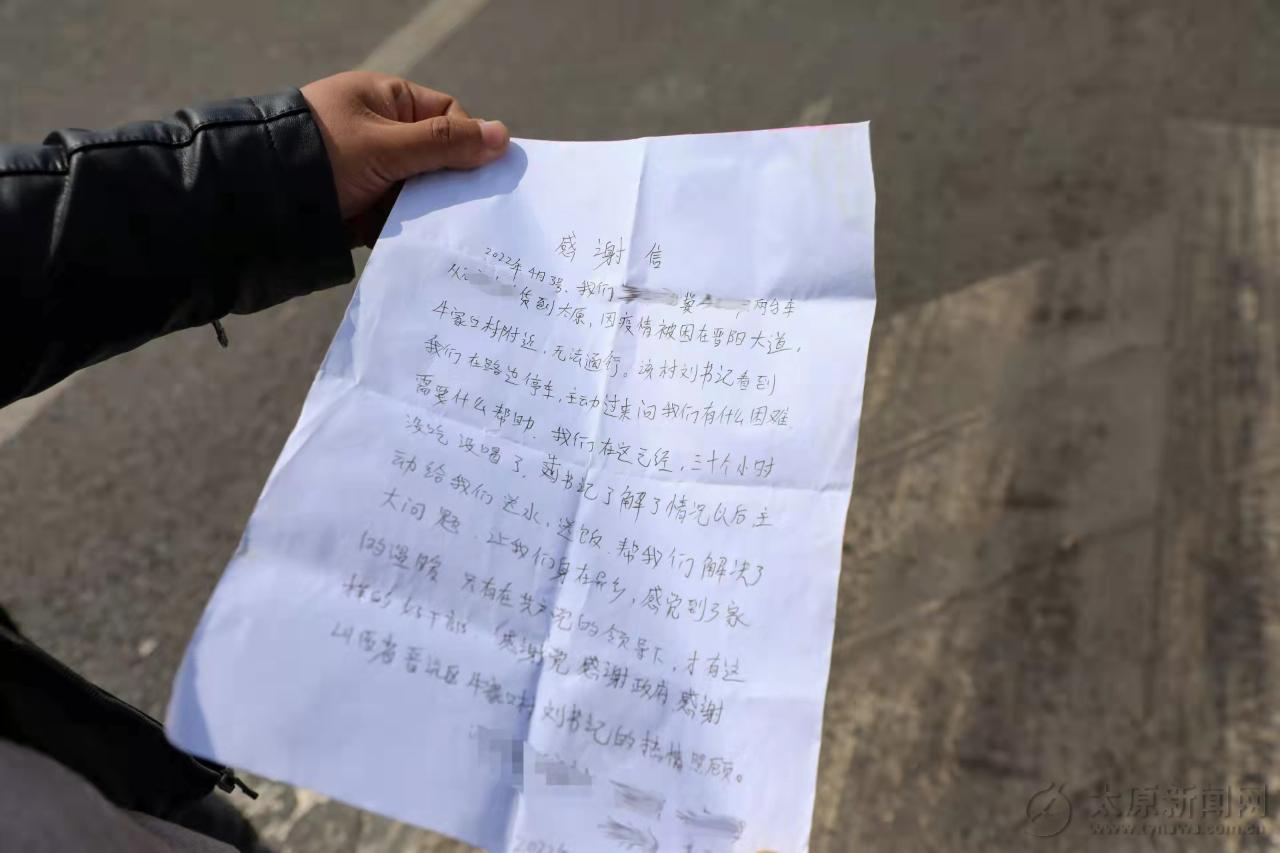 感谢信
2022年4月3号,我们 冀 两台车
从 货到太原,因疫情被困在晋阳大道,
牛家口村附近,无法通行。该村刘书记看到
我们在路边停车,主动过来问我们有什么困难
需要什么帮助.我们在这已经,三十个小时
没吃没喝了,刘书记了解了情况以后主
动给我们送水,送饭.帮我们解决了
大问题.让我们身在异乡,感觉到了家
的温暖 只有在共产党的领导下,才有这
样的好干部 感谢党感谢政府.感谢
山西省晋源区牛家口村刘书记的热情照顾。
2022年
太原新闻网
www.tynews.com.cn